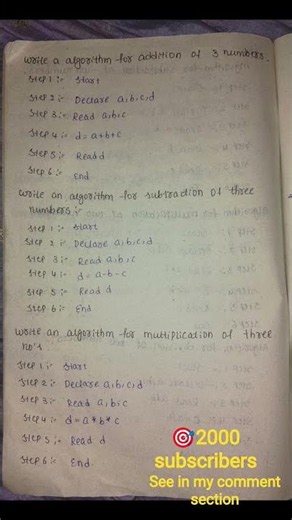 write a algorithm for addition of 3 numbers.
Step 1 :- Start
Step 2 :- Declare a,b,c,d
Step 3 :- Read a,b,c
Step 4 :- d = a+b+c
Step 5 :- Read d
Step 6 :- End
write an algorithm for subtraction of three
numbers :-
Step 1 :- Start
Step 2 :- Declare a,b,c,d
Step 3 :- Read a,b,c
Step 4 :- d = a-b-c
Step 5 :- Read d
Step 6 :- End
write an algorithm for multiplication of three
no's.
Step 1 :- Start
Step 2 :- Declare a,b,c,d
Step 3 :- Read a,b,c
Step 4 :- d = a*b*c
Step 5 :- Read d
Step 6 :- End.
🎯2000
subscribers
See in my comment
section